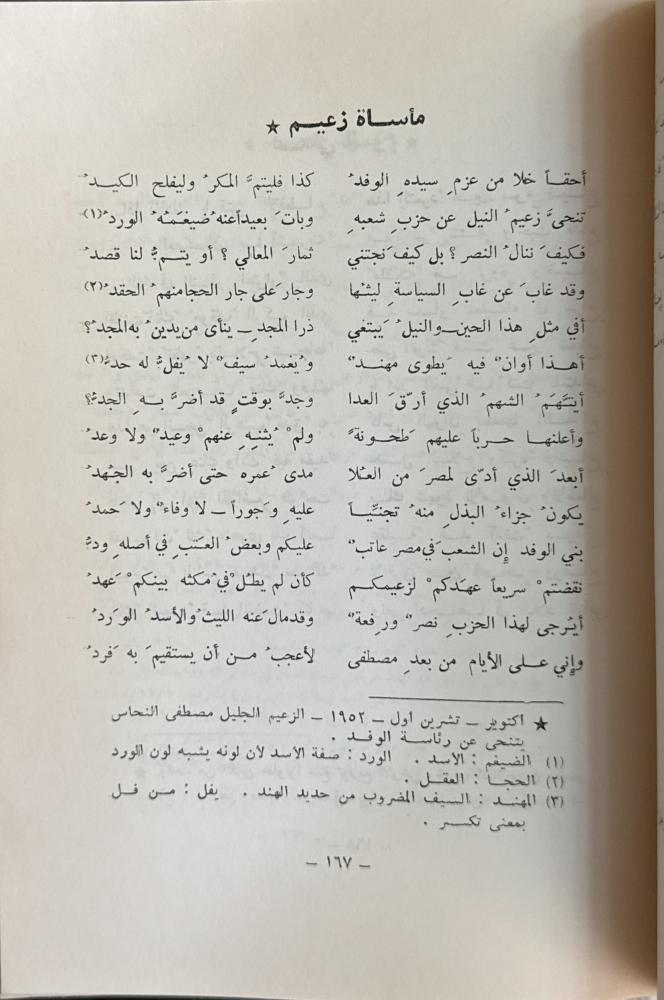 مأساة زعيم ★
أحقاً خلا من عزمِ سيدهِ الوفدُ كذا فليتمَّ المكرُ وليفلح الكيدُ
تنحىَّ زعيمُ النيل عن حزبِ شعبهِ وباتَ بعيداً عنه ضيغَمُهُ الوردُ (١)
فكيفَ ننالُ النصر؟ بل كيفَ نجتني ثمارَ المعالي؟ أو يتمُّ لنا قصدُ
وقد غابَ عن غابِ السياسةِ ليثُها وجارَ على جار الحجا منهمُ الحقدُ (٢)
أفي مثلِ هذا الحينِ ــ والنيلُ يَبتغي ذرا المجدِ ــ ينأى من يدينُ به المجدُ؟
أهذا أوانٌ فيه يَطوى مهندٌ ويُغمدُ سيفٌ لا يُفلُّ له حدُّ (٣)
أيُتَّهَمُ الشهمُ الذي أرّقَ العدا وجدَّ بوقتٍ قد أضرَّ بهِ الجدُّ؟
وأعلنها حرباً عليهم طَحونةً ولمْ يُثنهِ عنهمْ وعيدٌ ولا وعدُ
أبعدَ الذي أدّى لمصرَ من العُلا مدى عُمره حتى أضرَّ به الجُهدُ
يكونُ جزاءُ البذلِ منهُ تجنيّاً عليهِ وجَوراً ــ لا وفاءٌ ولا حَمدُ
بني الوفد إن الشعبَ في مصر عاتبٌ عليكم وبعضُ العَتبِ في أصلهِ ودُّ
نقضتمْ سريعاً عهدَكمْ لزعيمكم كأن لم يطُلْ في مُكثه بينكمْ عَهدُ
أيُرجى لهذا الحزبِ نصرٌ ورِفعةٌ وقد مالَ عنه الليثُ والأسدُ الوَردُ
وإني على الأيام من بعدِ مصطفى لأعجبُ من أن يستقيمَ به فَردُ
★ اكتوبر ــ تشرين أول ــ ١٩٥٢ ــ الزعيم الجليل مصطفى النحاس
يتنحى عن رئاسة الوفد .
(١) الضيغم : الأسد . الورد : صفة الأسد لأن لونه يشبه لون الورد
(٢) الحجا : العقل .
(٣) المهند : السيف المضروب من حديد الهند . يفل : من فل
بمعنى تكسر .
ــ ١٦٧ ــ